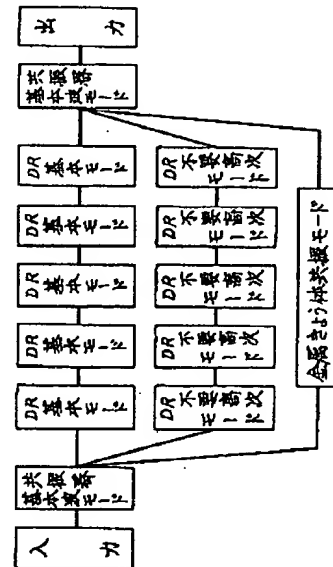 入力
共振器
基本波モード
DR
基本モード
DR
基本モード
DR
基本モード
DR
基本モード
DR
基本モード
共振器
基本波モード
出力
DR
不要高次
モード
DR
不要高次
モード
DR
不要高次
モード
DR
不要高次
モード
DR
不要高次
モード
金属きょう体共振モード